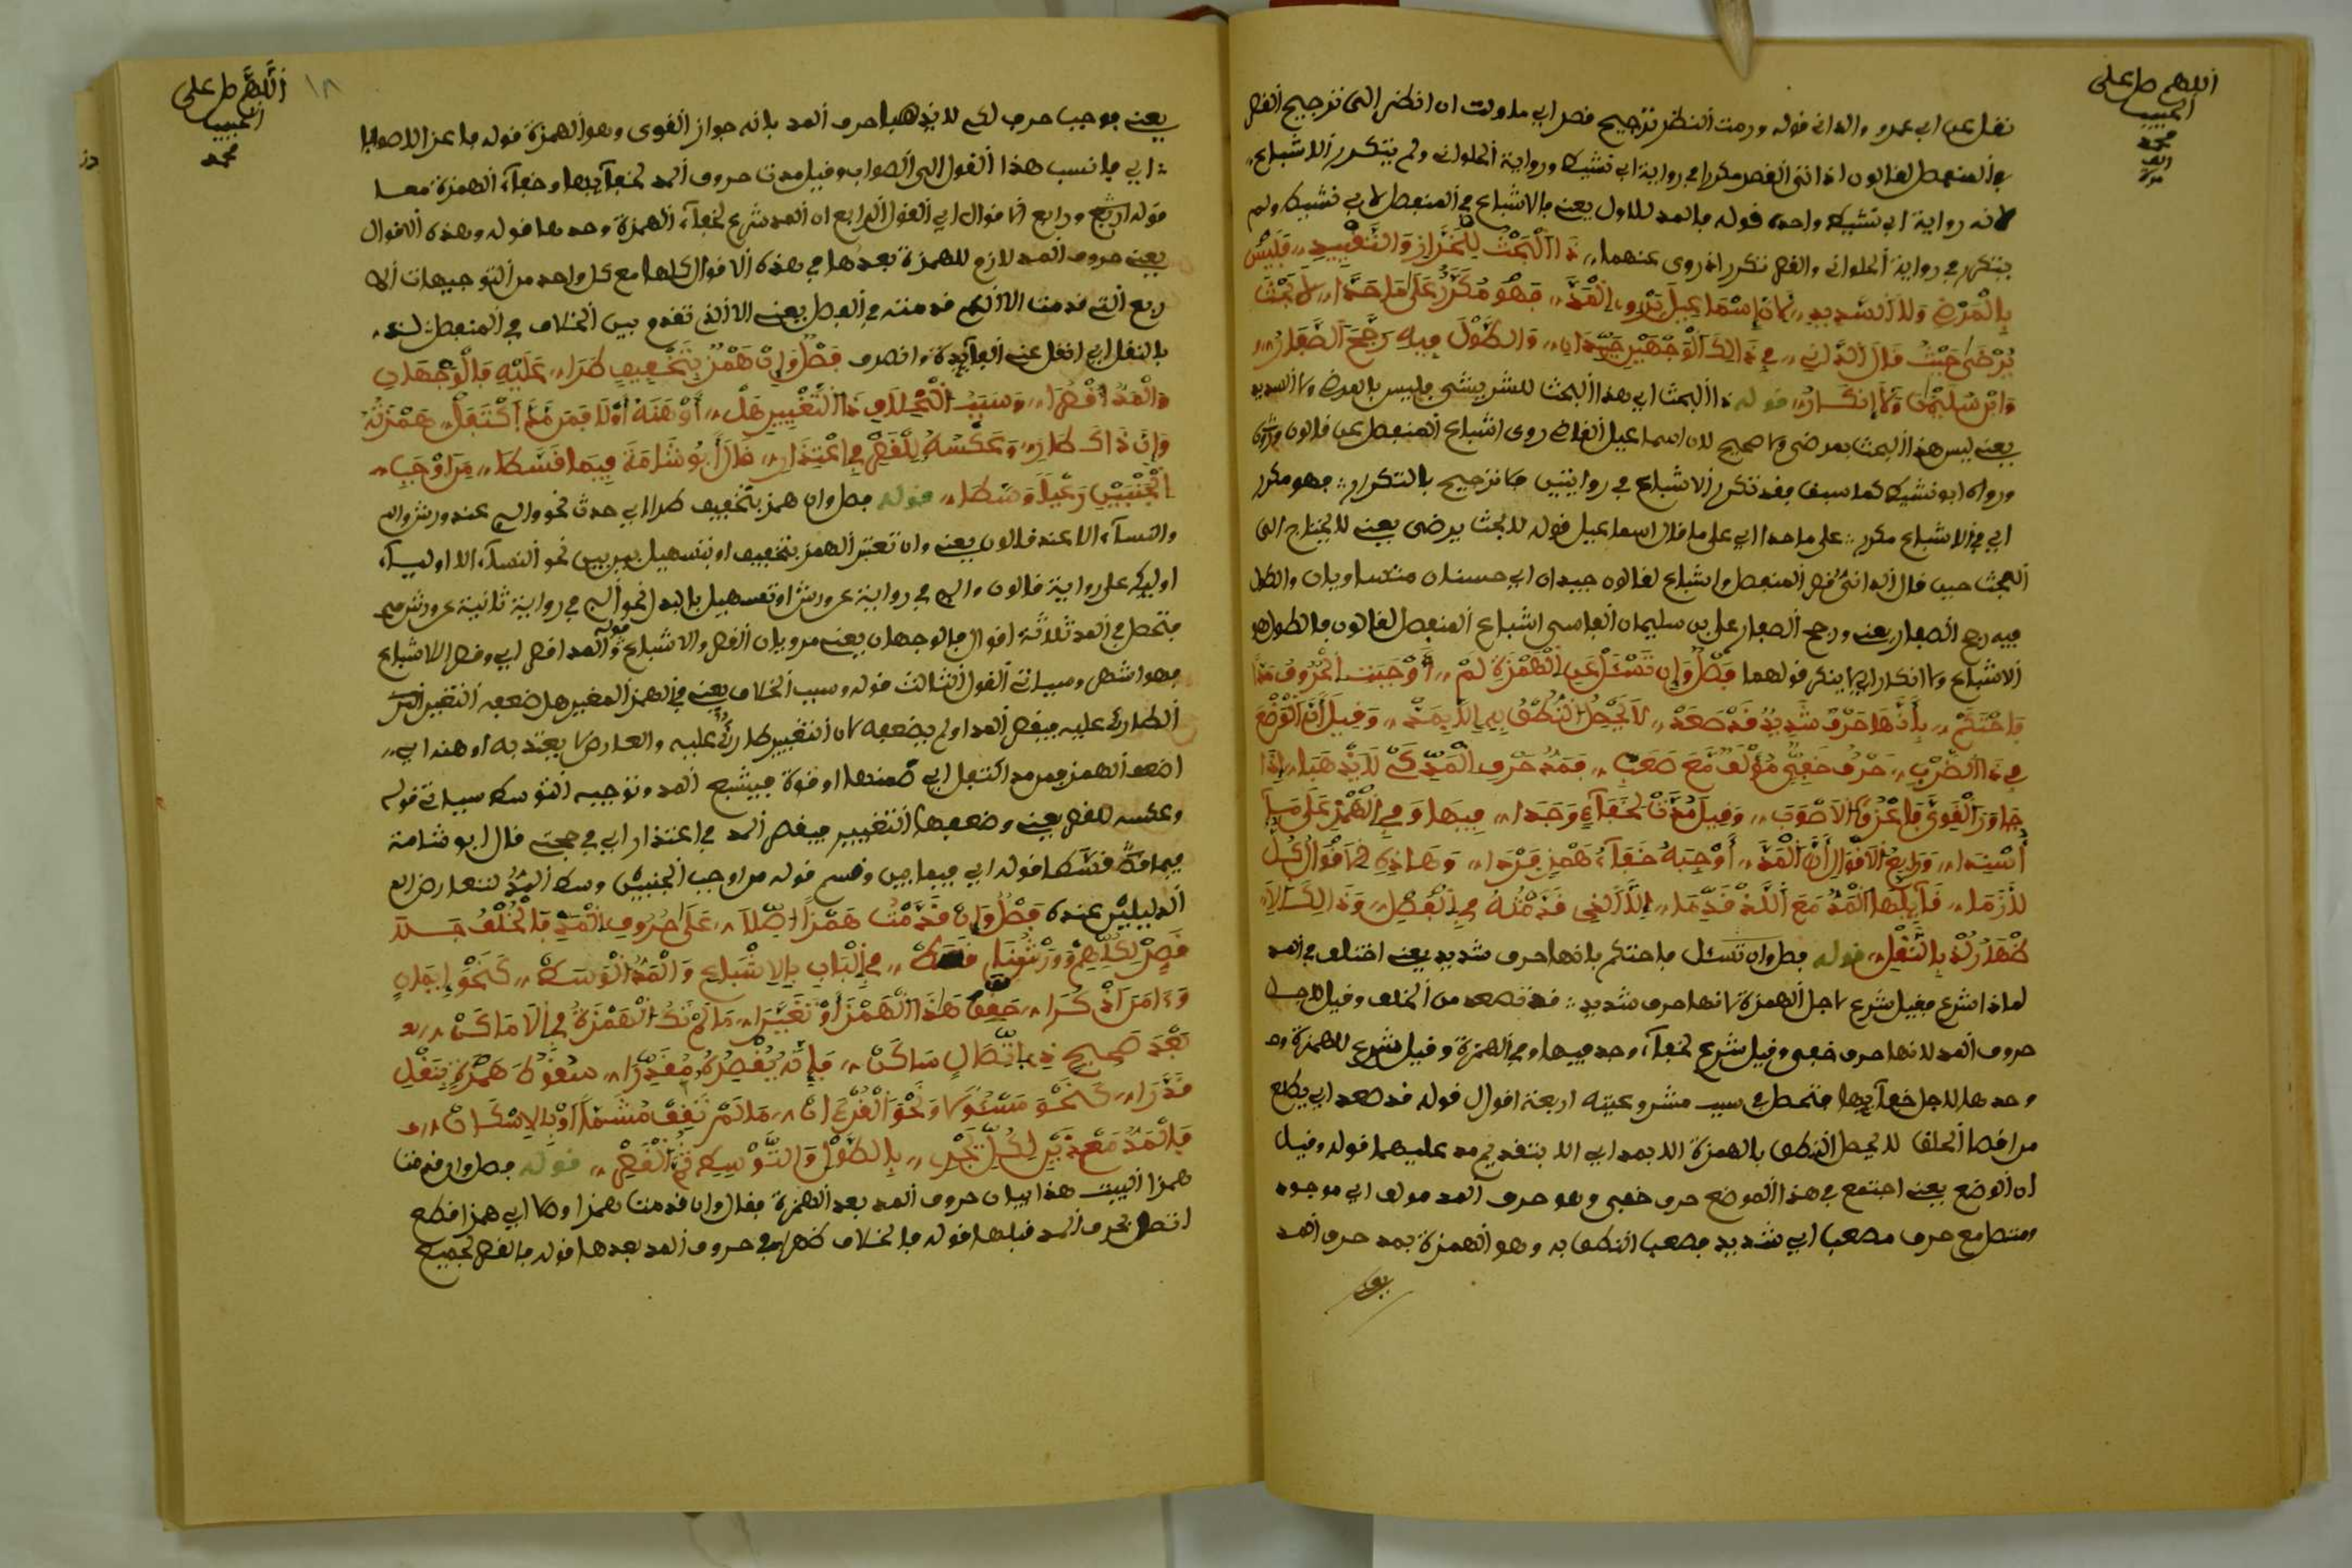 اللهم صل على
الحبيب
محمد
الف
مرة
نقل عن ابي عمرو والداني قوله ورمت النظر ترجيح قصر اي ملولت ان انظر الى ترجيح القصر
في المنفصل لقالون اذ اتى القصر مكررا في رواية ابي نشيط ورواية الحلواني ولم يتكرر الاشباع
لانه رواية ابي نشيط واحدة قوله بالمد للاول يعني بالاشباع في المنفصل لابي نشيط ولم
يتكرر في رواية الحلواني والقصر تكرر اذ روى عنهما ذَا الْبَحْثُ لِلْخَرَّازِ وَالتَّقْيِيدِ فَلَيْسَ
بِالْمَرْضِي وَلَا السَّدِيدِ لِأَنَّ إِسْمَاعِيلَ يَرْوِي الْمَدَّ فَهُوَ مُكَرَّرٌ عَلَى مَا حَدَّا لَا بَحْثَ
يُرْضَى حَيْثُ قَالَ الدَّانِي فِي ذَلِكَ الْوَجْهَيْنِ جَيِّدَانِ وَالطُّولَ فِيهِ رَجَّحَ الصَّفَّارُ
وَابْنُ سُلَيْمَانَ وَلَا إِنْكَارُ قوله ذا البحث اي هذا البحث للشريشي فليس بالمرض ولا السديد
يعني ليس هذا البحث بمرضي ولا صحيح لان اسماعيل القاضي روى اشباع المنفصل عن قالون
ورواه ابو نشيط كما سبق فقد تكرر الاشباع في روايتين فلا ترجيح بالتكرار فهو مكرر
اي في الاشباع مكرر على ما حدا اي على ما قال اسماعيل قوله لا بحث يرضى يعني لا يحتاج الى
البحث حين قال الداني قصر المنفصل واشباع لقالون جيدان اي حسنان متساويان والطول
فيه رجح الصفار يعني ورجح الصفار علي بن سليمان الفاسي اشباع المنفصل لقالون فالطول هو
الاشباع ولا انكار اي لا ينكر قولهما فَصْلٌ وَإِن تَسْئَلْ عَنِ الْهَمْزَةِ لِمْ أَوْجَبَتِ الْحُرُوفَ مَدًّا
فَاحْتَكِمْ بِأَنَّهَا حَرْفٌ شَدِيدٌ قَدْ صَعَدْ لَا يَحْصُلُ النُّطْقُ بِهِ إِلَّا بِمَدْ وَقِيلَ أَنَّ الْوَضْعَ
فِي ذَا الضَّرْبِ حَرْفٌ خَفِيٌّ مُؤْلَفٌ مَعَ صَعْبِ فَمَدُّ حَرْفِ الْمَدِّ كَيْ لَا يَذْهَبَا إِذَا
جَاوَزَ الْقَوِيَّ فَاعْزُ الْأَصْوَبَ وَقِيلَ مُدَّتْ لِخَفَاءٍ وُجِدَا فِيهَا وَفِي الْهَمْزِ عَلَى مَا
أُسْنِدَا وَرَابِعُ الْأَقْوَالِ أَنَّ الْمَدَّ أَوْجَبَهُ خَفَاءُ هَمْزٍ فَرْدَا وَهَذِهِ الْأَقْوَالُ كُلٌّ
لَازَمَا قَائِلُهَا الْمَدَّ مَعَ اللَّذْ قَدَّمَا إِلَّا الَّذِي قَدَّمْتُهُ فِي الْفَصْلِ وَذَلِكَ الَا
ظْهَرُ لُذْ بِالنَّقْلِ قوله فصل وان تسئل فاحتكم بانها حرف شديد يعني اختلف في المد
لماذا شرع فقيل شرع لاجل الهمزة لانها حرف شديد قد صعد من الحلق وقيل لاجل
حروف المد لانها حرف خفي وقيل شرع لخفاء وجد فيها وفي الهمزة وقيل شرع للهمزة و
وحدها لاجل خفائها فتحصل في سبب مشروعيته اربعة اقوال قوله قد صعد اي يطلع
من اقصا الحلق لا يحصل النطق بالهمزة الا بمد اي الا بتقديم مد عليهما قوله وقيل
ان الوضع يعني اجتمع في هذا الموضع حرف خفي وهو حرف المد مولف اي موجود
ومتصل مع حرف مصعب اي شديد يصعب النطق به وهو الهمزة بمد حرف المد
اللهم صل على
الحبيب
محمد
١٨
يعني موجب حرف لكي لا يذهب احرف المد بانه جواز القوى وهو الهمزة قوله فاعز الاصوبا
اي فانسب هذا القول الى الصواب وقيل مدت حروف المد لخفائها وخفاء الهمزة معا
قوله ورابع الاقوال اي القول الرابع ان المد شرع لخفاء الهمزة وحدها قوله وهذه الاقوال
يعني حروف المد لازم للهمزة بعدها في هذه الاقوال كلها مع كل واحد من التوجيهات الا
ربع التي قدمت الا الذي قدمته في الفصل يعني الا الذي تقدم بين الخلاف في المنفصل لذ
بالنقل اي انقل عنه الفائدة وانصرف فَصْلٌ وَإِنْ هَمْزٌ بِتَخْفِيفٍ طَرَا عَلَيْهِ فَالْوَجْهَانِ
وَالْمَدُّ اقْصُرَا وَسَبَبُ الْخِلَافِ ذَا التَّغْيِيرِ هَلْ أَوْهَنَهُ أَوْ لَا فَمَن مَدَّ اكْتَفَلْ هَمْزَتُهُ
وَإِنَّ ذَاكَ طَارِ وَعَكْسُهُ لِلْقَصْرِ فِي اعْتِذَارِ قَالَ أَبُو شَامَةَ فِيمَا قَسَطَا مَنْ اوْجَبَ
الْجَنْبَيْنِ رَعْيًا وَسَطَا قوله فصل وان همز بتخفيف طرا اي حدث نحو والسم عند ورش والم
والنساء الا عند قالون يعني وان تغير الهمز بتخفيف او بتسهيل بين بين نحو النساء الا اولياء
اوليك على رواية قالون والم في رواية عن ورش او تسهيل بالبدل نحو الم في رواية ثانية عن ورش
فتحصل في المد ثلاثة اقوال فالوجهان يعني مرويان القصر والاشباع قوله والمد اقصر اي وقصر الاشباع
فهو اشهر وسياتي القول الثالث قوله وسبب الخلاف يعني في الهمز المغير هل ضعفه التغير
الطارئ عليه فيقصر المد او لم يضعفه لان التغيير طارئ عليه والعارض لا يعتد به اوهنه اي
اضعف الهمز فمن مد اكتفل اي ضمنها او قوة فيشبع المد وتوجيه التوسط سياتي قوله
وعكسه للقصر يعني وضعفها التغيير فيقصر المد في اعتذار اي في حجته قال ابو شامة
فيما قسطا قوله اي فيما بين وقسم قوله من اوجب الجنبين وسط المد لتعارض ال
الدليلين عنده فَصْلٌ وَإِنْ قَدَّمْتَ هَمْزًا أَصْلَا عَلَى حُرُوفِ الْمَدِّ فَالْخُلْفُ جَلَا
فَصِلْ لِكُلِّهِمْ وَوَرْشُنَا فِي الْبَابِ بِالْإِشْبَاعِ وَالْمَدُّ الْوَسَطْ كَنَحْوِ إِيمَانٍ
وَءَامَنَ اذْكُرَا حَقِّقْ هَذَا الْهَمْزَ أَوْ تَغَيَّرَا مَا لَمْ تَكُ الْهَمْزَةُ فِي إِلَّا مَا كَنْ
بَعْدَ صَحِيحٍ ذِي اتِّصَالٍ سَاكَنْ فَإِنَّهُ يَقْصُرُهُ مُقَدِّرَا سُقُوطَ هَمْزَةٍ بِنَقْلٍ
قَدَّرَا كَنَحْوِ مَسْئُولًا وَنَحْوِ الْقُرْءَانْ مَا لَمْ تَقِفْ مُشَمِّمًا أَوْ بِالْإِسْكَانْ
فَالْمَدُّ مَعْ لِكُلٍّ يَجْرِي بِالطُّولِ وَالتَّوْسِيطِ ثُمَّ الْقَصْرِ قوله فصل وان قدمت
همزا البيت هذا بيان حروف المد بعد الهمزة فقال وان قدمت همزا وصلا اي همزا قطع
اتصل بحرف المد قبلها قوله فالخلاف ظهر في حروف المد بعدها قوله فالقصر لجميع